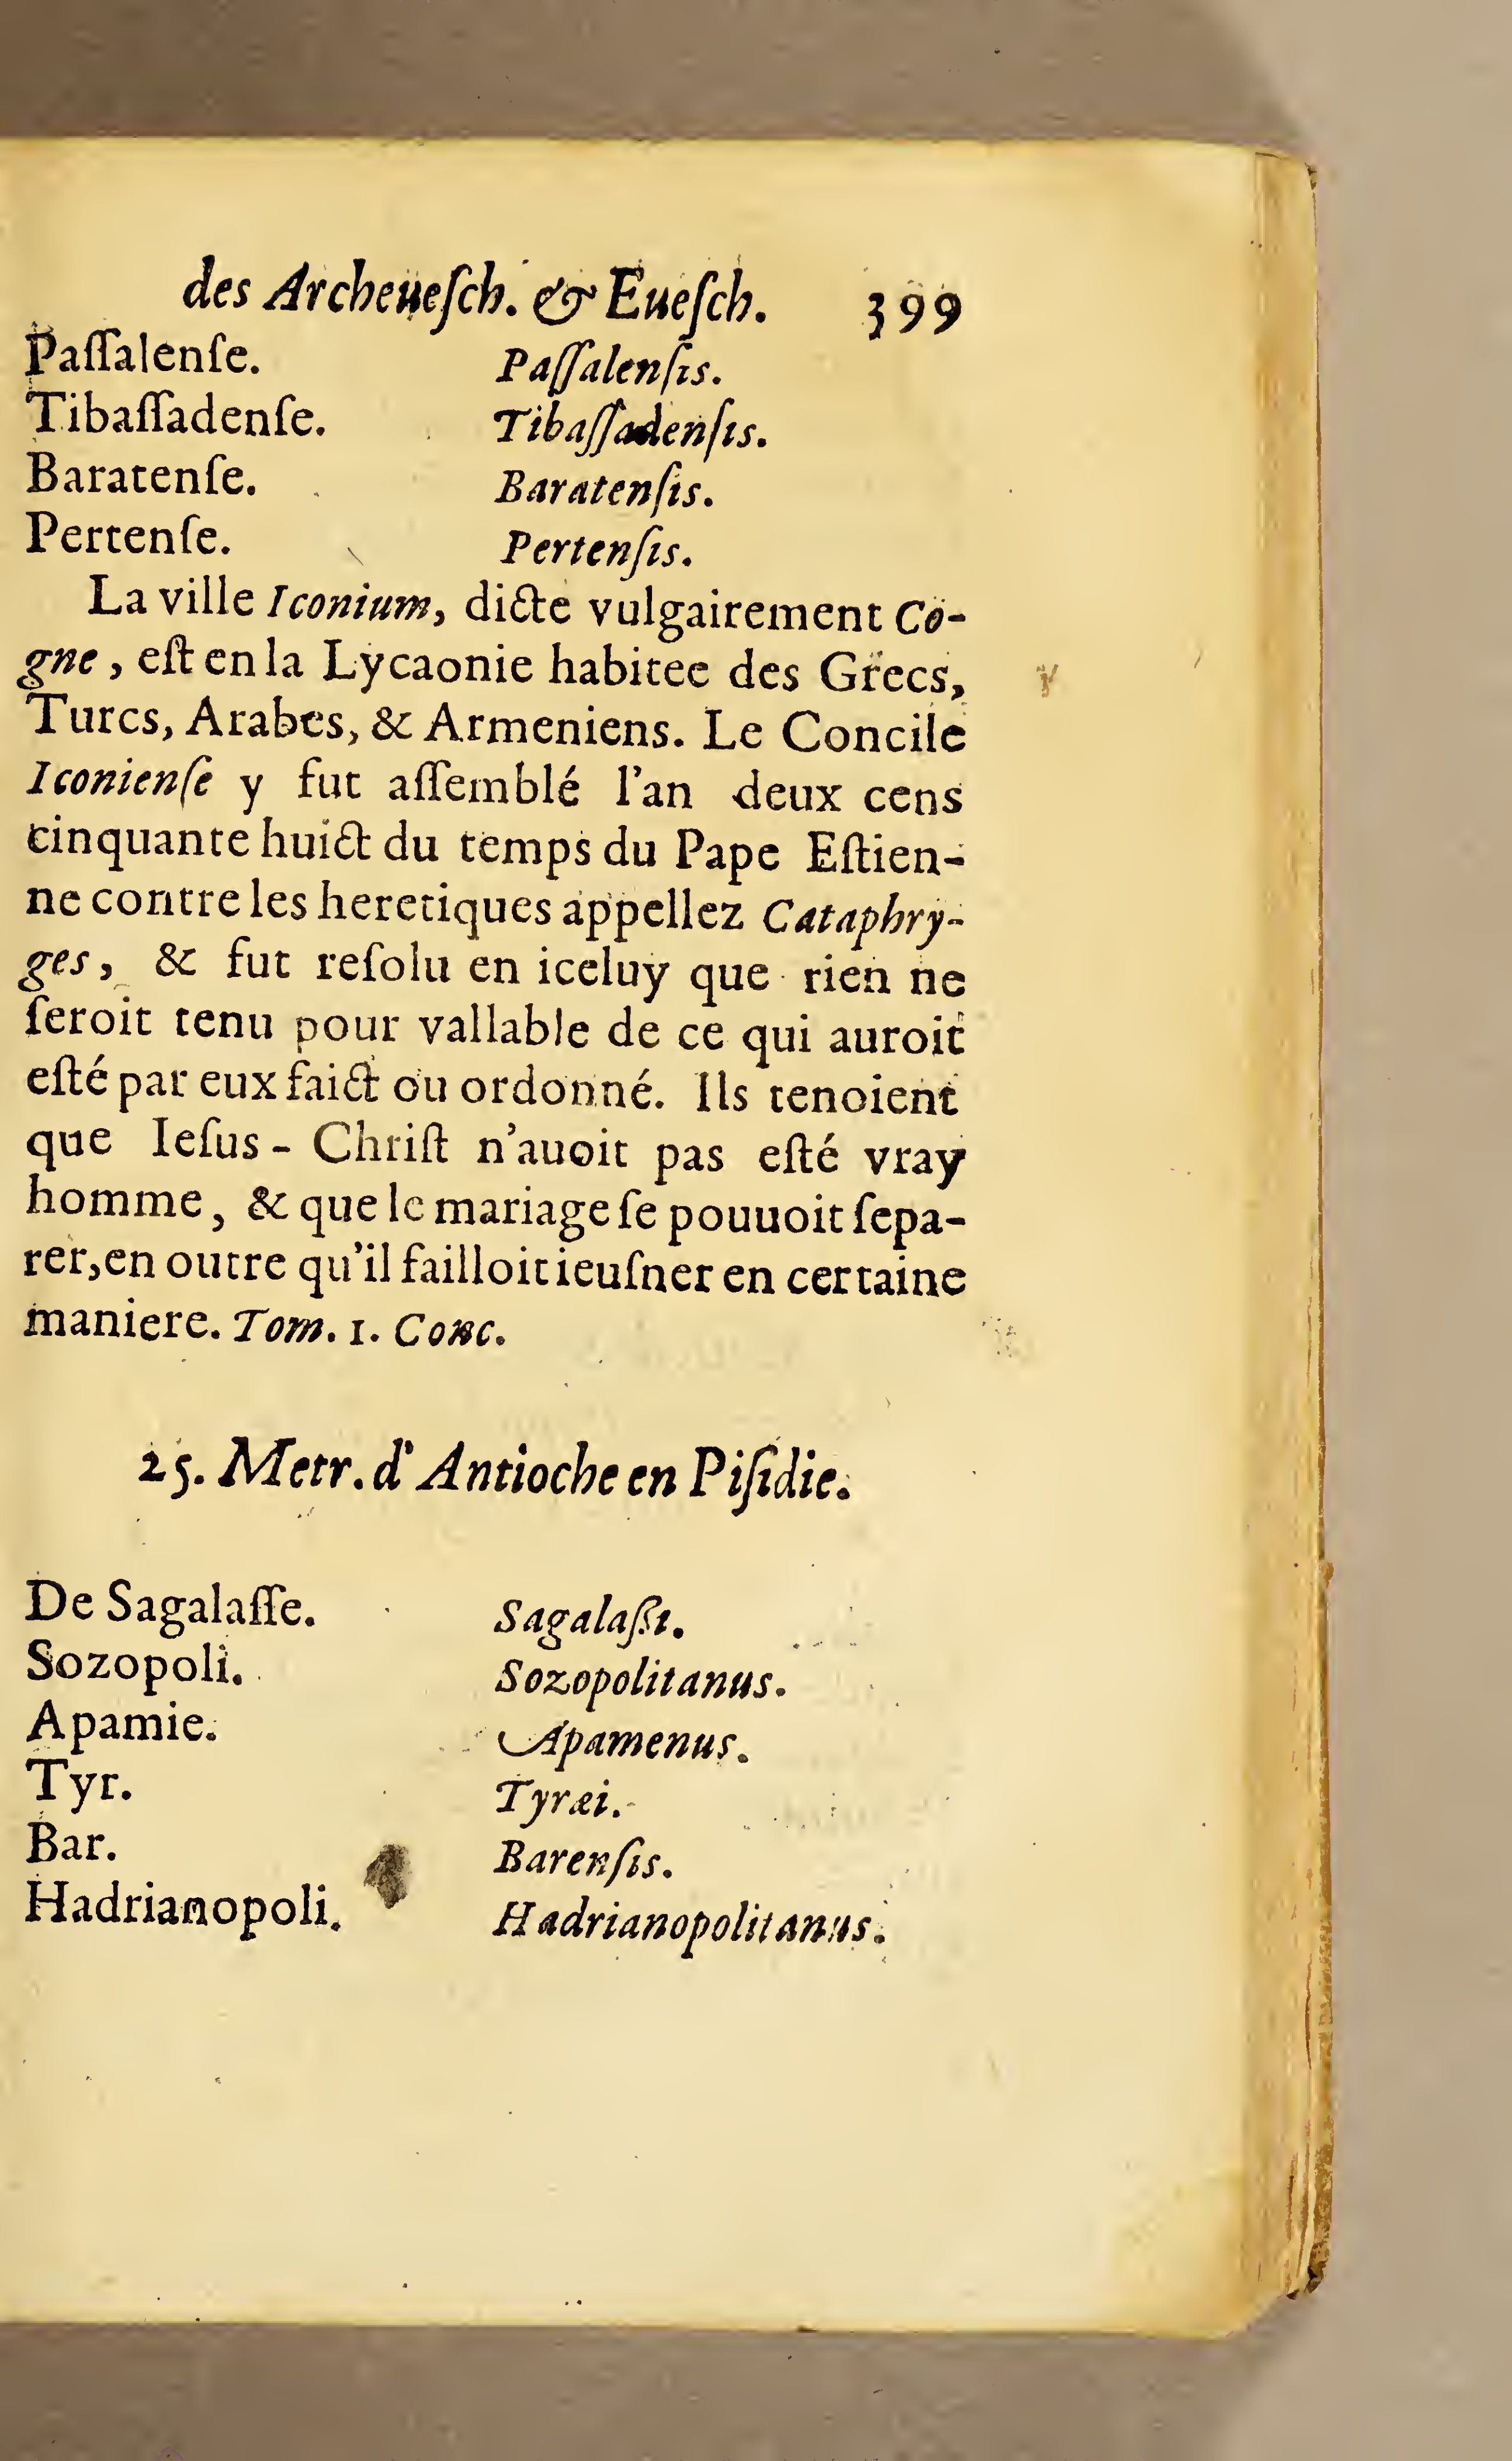 des Archeueſch. & Eueſch. 399
Paſſalenſe. Paſſalenſis.
Tibaſſadenſe. Tibaſſadenſis.
Baratenſe. Baratenſis.
Pertenſe. Pertenſis.
La ville Iconium, dicte vulgairement Co-
gne, eſt en la Lycaonie habitee des Grecs,
Turcs, Arabes, & Armeniens. Le Concile
Iconienſe y fut aſſemblé l'an deux cens
cinquante huict du temps du Pape Eſtien-
ne contre les heretiques appellez Cataphry-
ges, & fut reſolu en iceluy que rien ne
ſeroit tenu pour vallable de ce qui auroit
eſté par eux faict ou ordonné. Ils tenoient
que Ieſus-Chriſt n'auoit pas eſté vray
homme, & que le mariage ſe pouuoit ſepa-
rer, en outre qu'il failloit ieuſner en certaine
maniere. Tom. 1. Conc.
25. Metr. d'Antioche en Piſidie.
De Sagalaſſe. Sagalaßi.
Sozopoli. Sozopolitanus.
Apamie. Apamenus.
Tyr. Tyræi.
Bar. Barenſis.
Hadrianopoli. Hadrianopolitanus.